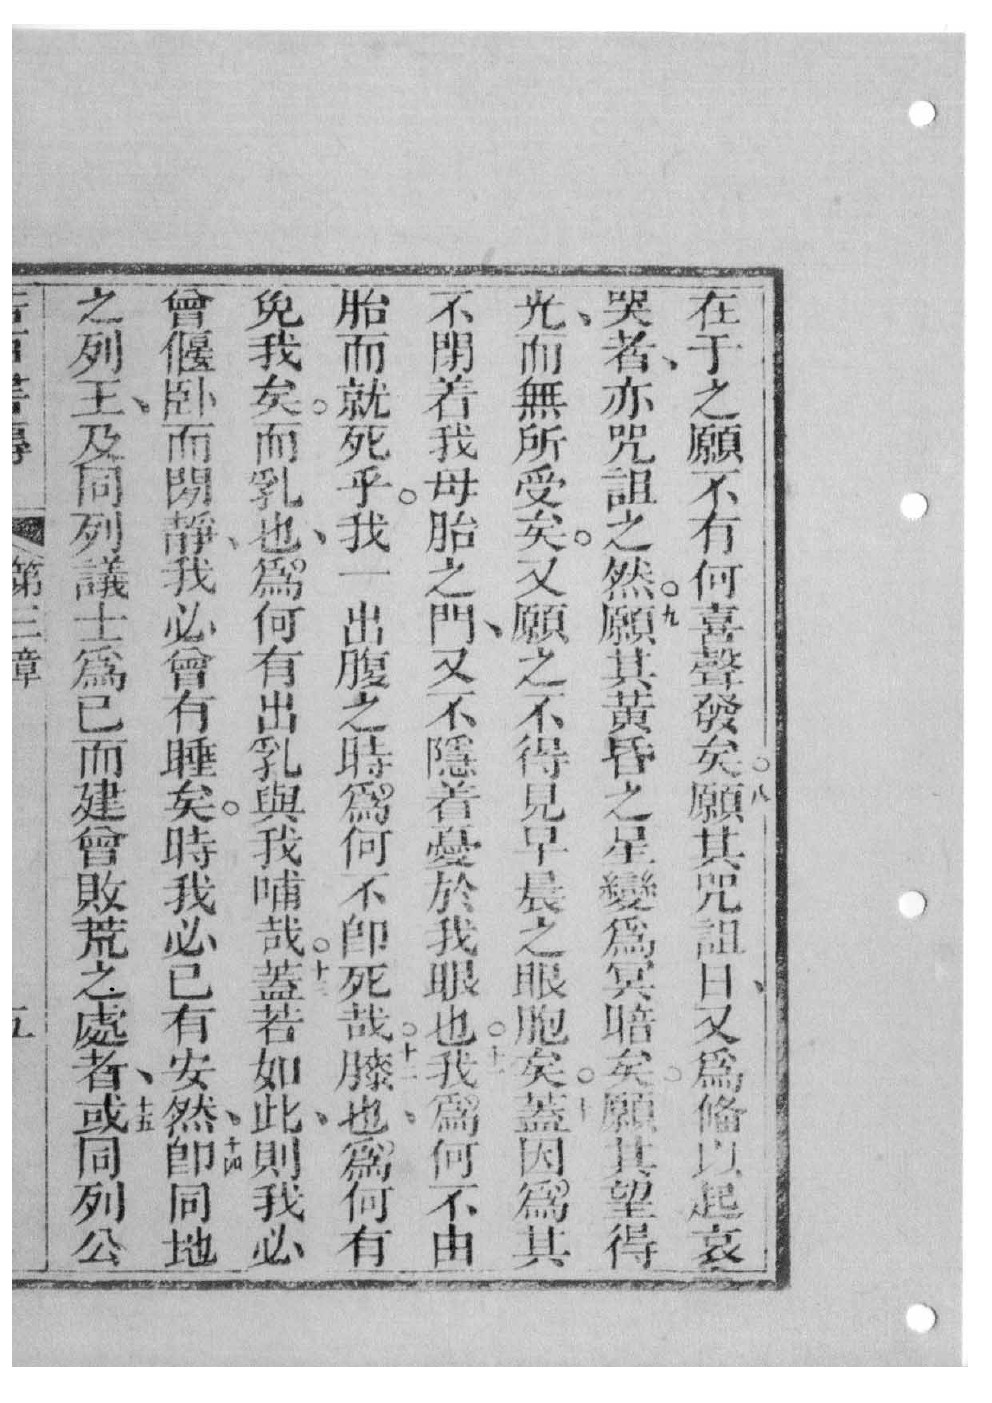 在于之願不有何喜聲發矣。八願其咒詛日、又爲俻以起哀
哭者、亦咒詛之然。九願其黃昏之星變爲冥暗矣。願其望得
光、而無所受矣。又願之不得見早晨之眼胞矣。十蓋因爲其
不閉着我母胎之門、又不隱着憂於我眼也。十一我爲何不由
胎而就死乎。我一出腹之時爲何不卽死哉。十二膝也、爲何有
免我矣。而乳也、爲何有出乳與我哺哉。十三蓋若如此、則我必
曾偃卧而閉靜、我必曾有睡矣。時我必已有安然、十四卽同地
之列王、及同列議士爲已而建曾敗荒之處者、十五或同列公
第三章 五